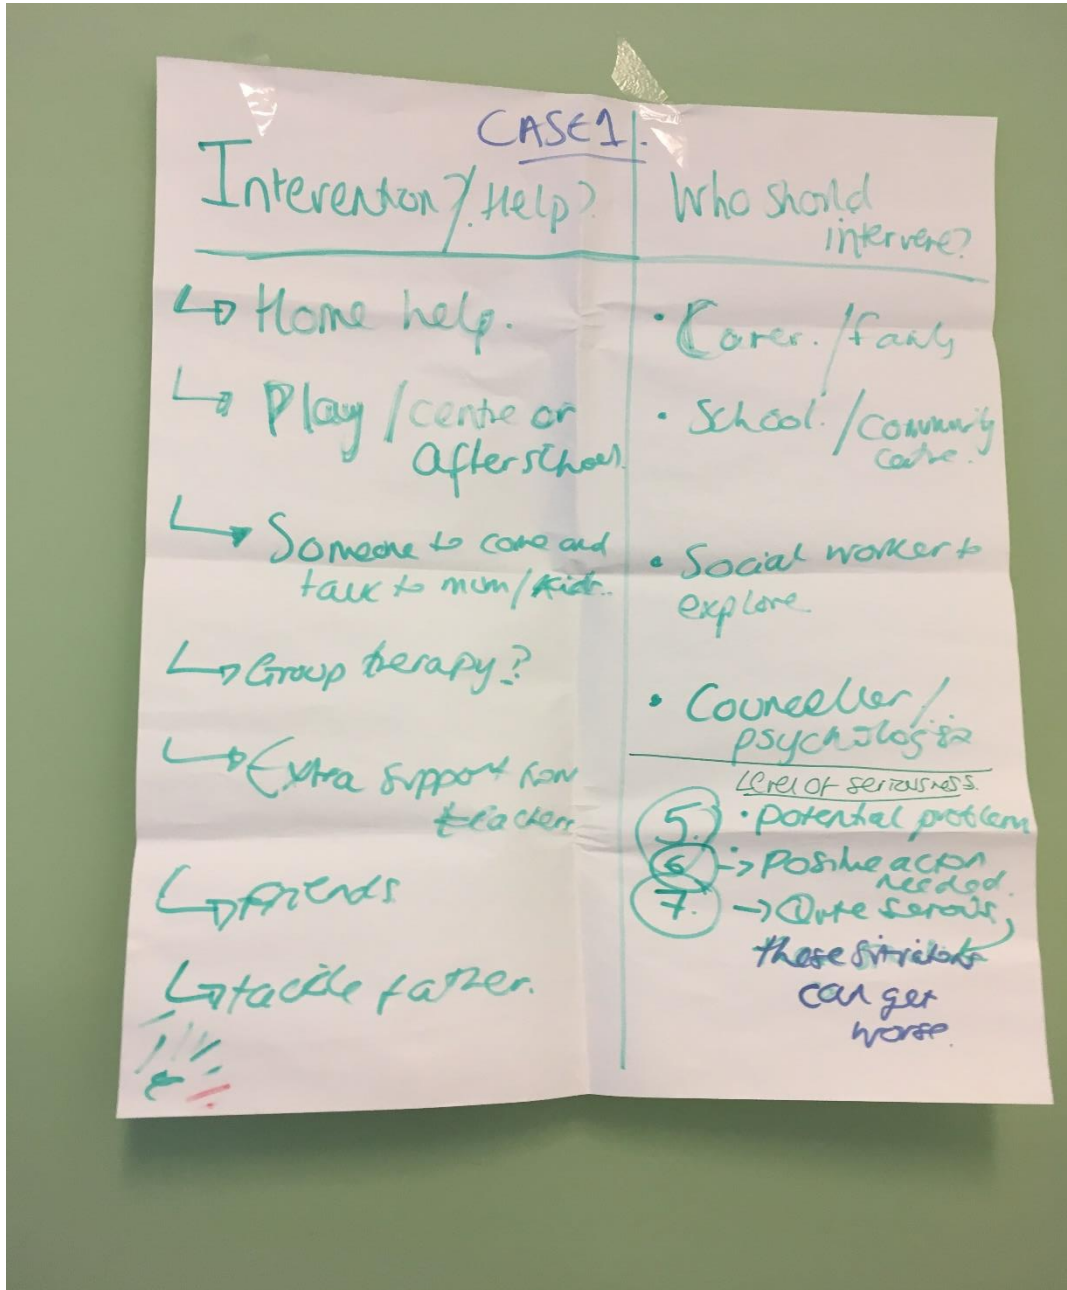 CASE 1.
Interention?/Help?
↳ Home help.
↳ Play/centre or
afterschool.
↳ Someone to come and
talk to mum/kids.
↳ Group therapy?
↳ Extra support from
teachers
↳ friends
↳ tackle father.
Who should
intervene?
• Carer./family
• School./community
centre.
• Social worker to
explore
• Counceller/
psychologist
Level of seriousness.
5. • Potential problem
6 -> Positive action
needed.
7. -> Quite serious,
these situations
can get
worse.